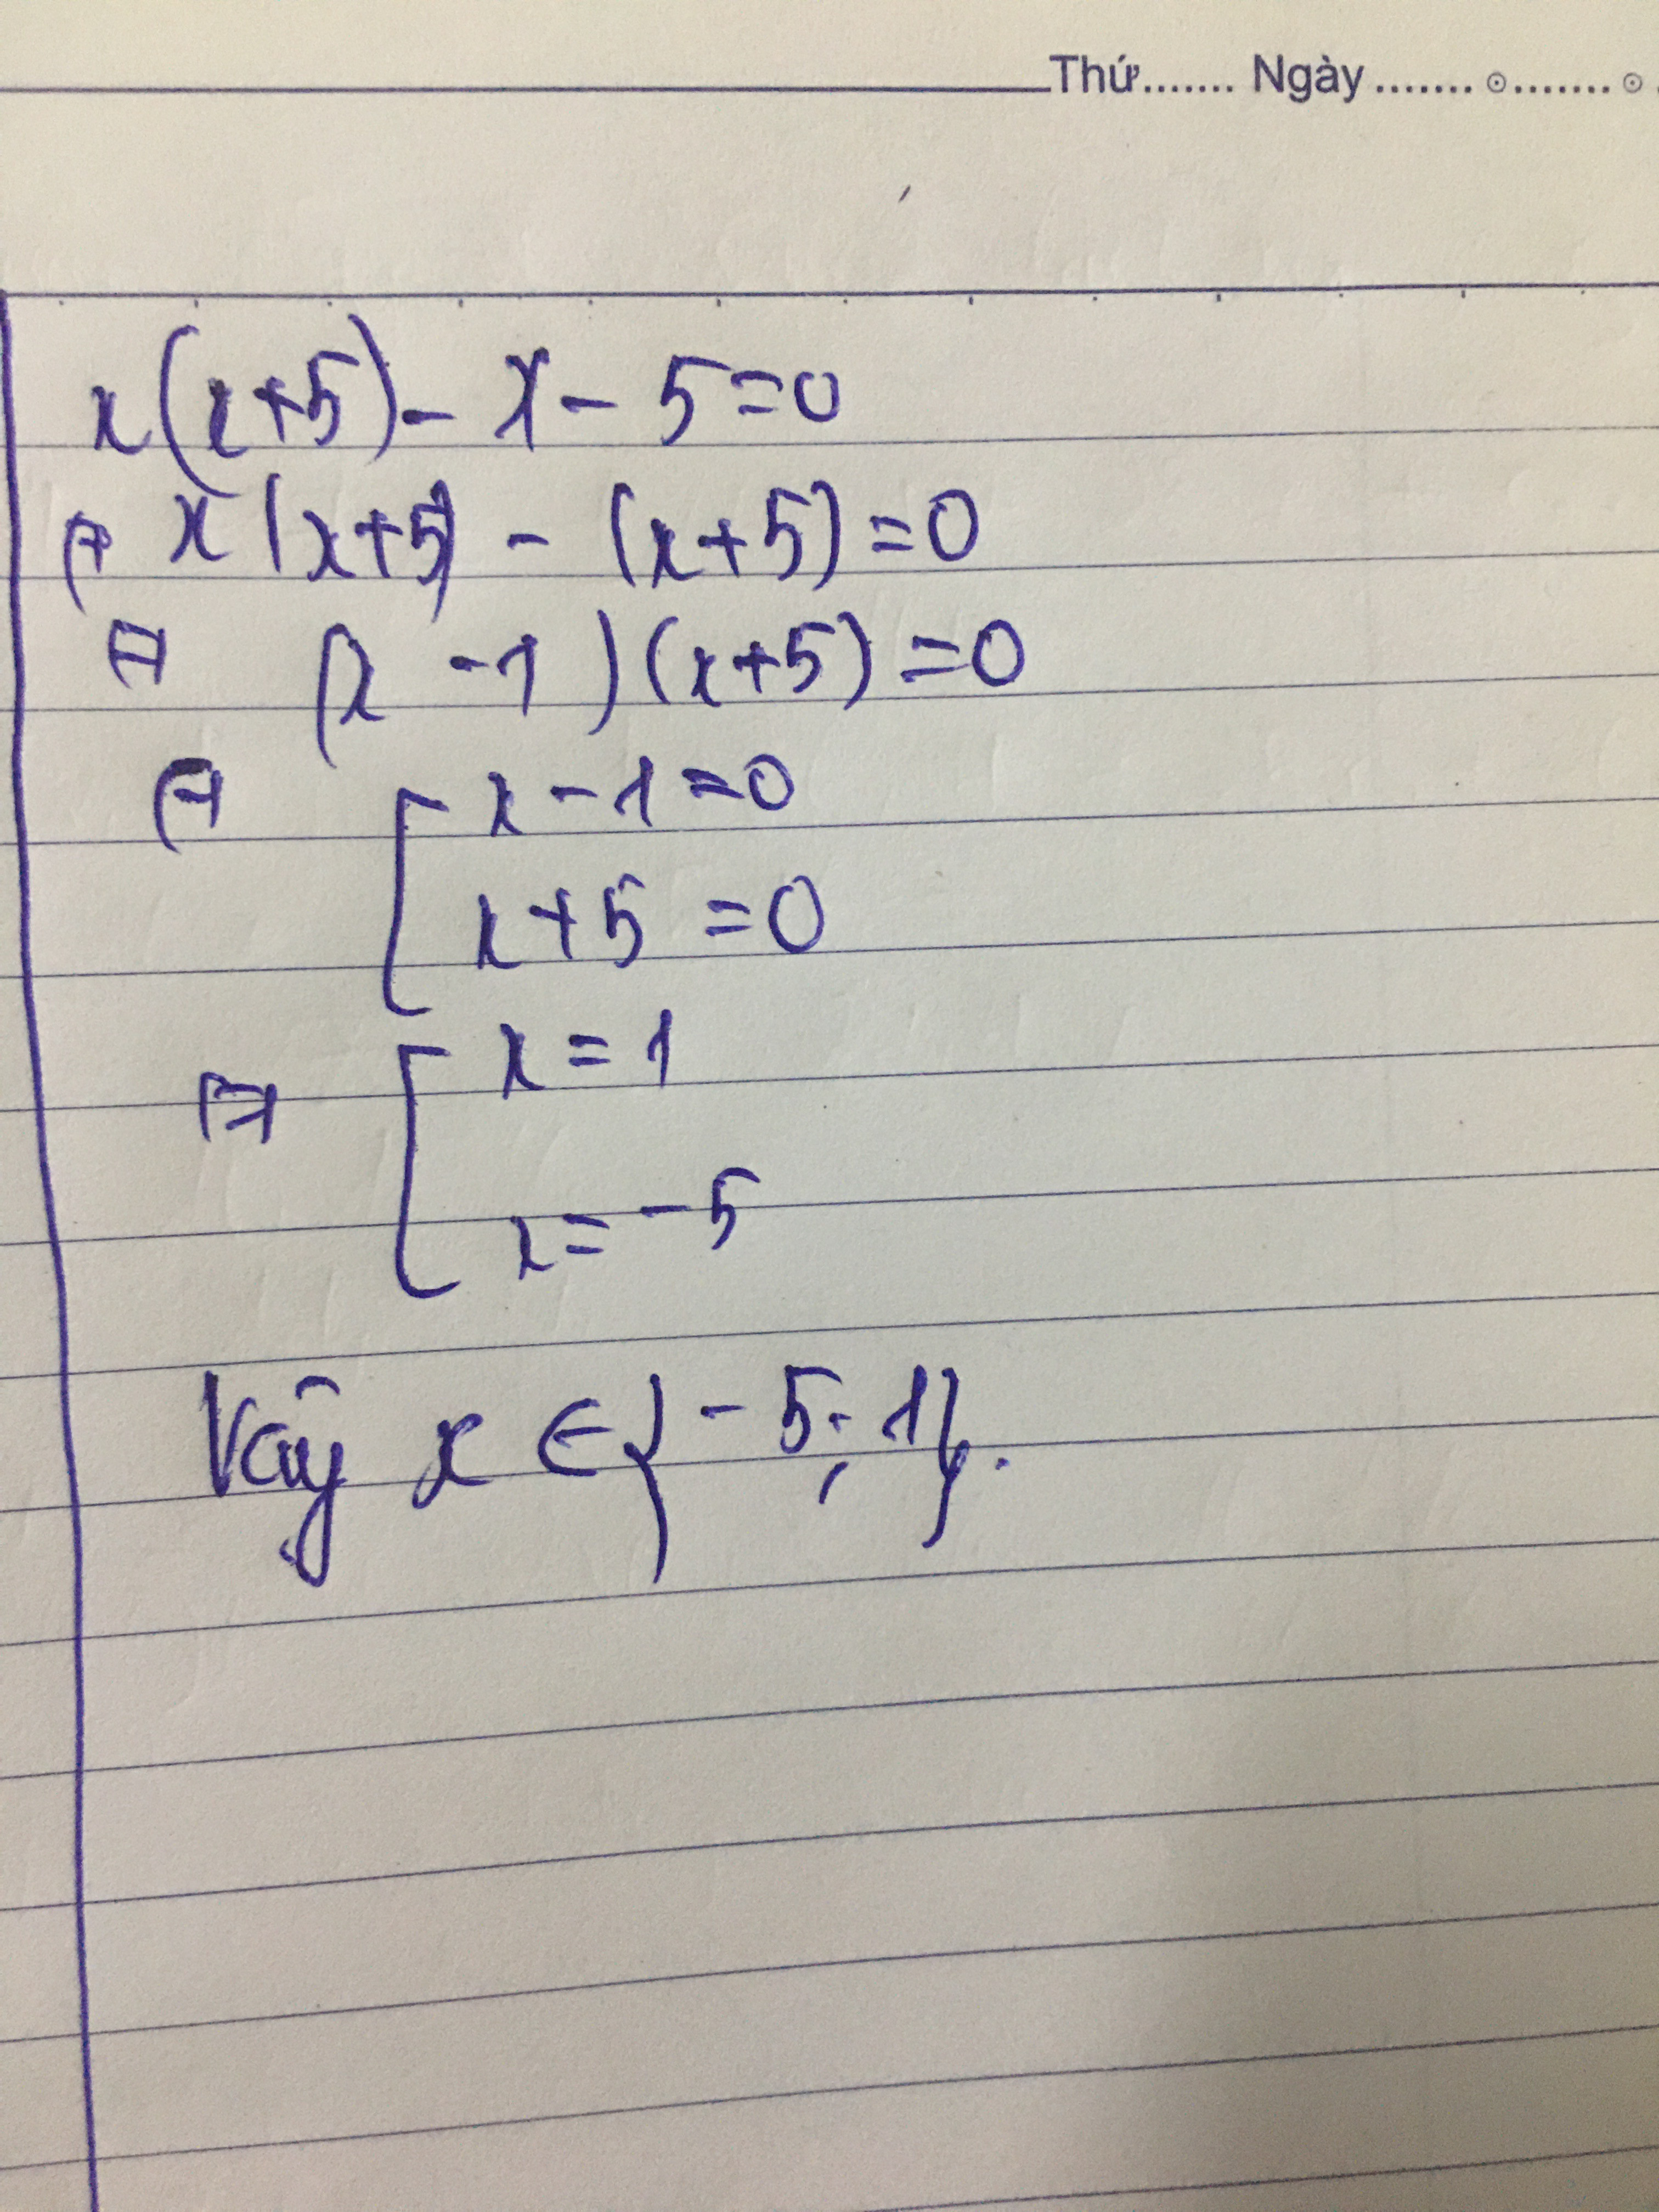 Thứ....... Ngày.......⊙.......⊙.
x(x+5) - x - 5 = 0
⇔ x(x+5) - (x+5) = 0
⇔ (x - 1)(x+5) = 0
⇔ [ x - 1 = 0
x + 5 = 0
⇔ [ x = 1
x = -5
Vậy x ∈ {-5; 1}.